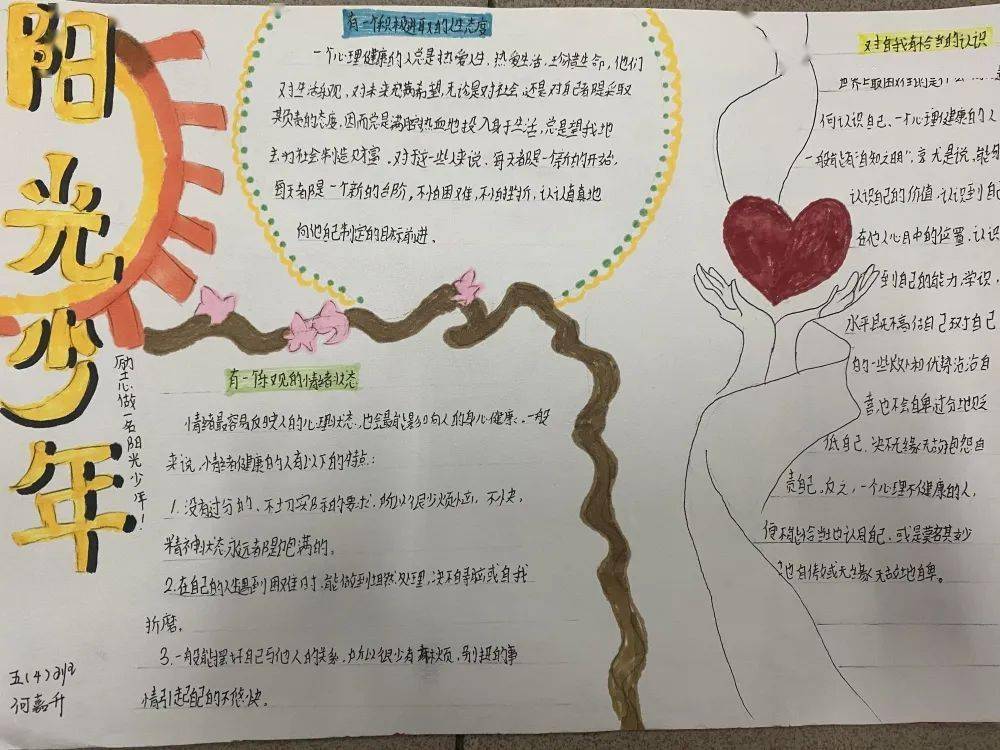 阳光少年
励志做一名阳光少年！
五(4)班
何嘉升
有一个积极进取的人生态度
一个心理健康的人总是热爱人生、热爱生活、珍惜生命，他们
对生活乐观、对未来充满希望,无论是对社会,还是对自己都是采取
其负责的态度,因而总是满腔热血地投入身于生活,总是望我地
去为社会制造财富，对于这一些人来说，每天都是一个新的开始，
每天都是一个新的台阶，不怕困难，不怕挫折，认认真真地
向他自己制定的目标前进.
有一个乐观的情绪状态
情绪最容易反映人的心理状态，也会最能影响人的身心健康。一般
来说，情绪健康的人有以下的特点：
1.没有过分的、不切实际的要求，所以很少烦恼，不快，
精神状态永远都是饱满的。
2.在自己的人生遇到困难时,能做到坦然处理,决不自寻短或自我
折磨。
3.一般能摆好自己与他人的关系,所以很少有麻烦,别扭的事
情引起自己的不愉快。
对自我有恰当的认识
世界上最困难的是
何认识自己、一个心理健康的人
一般能有"自知之明",意思就是说,能够
认识自己的价值、认识到自己
在他人心目中的位置、认识
到自己的能力、学识、
水平,既不高估自己,对于自己
的一些长处和优势沾沾自
喜,也不会自卑过分地贬
低自己、决不无缘无故抱怨自
责自己。反之，一个心理不健康的人，
便不能恰当地认同自己，或是莫名其妙
地自傲或无缘无故地自卑。